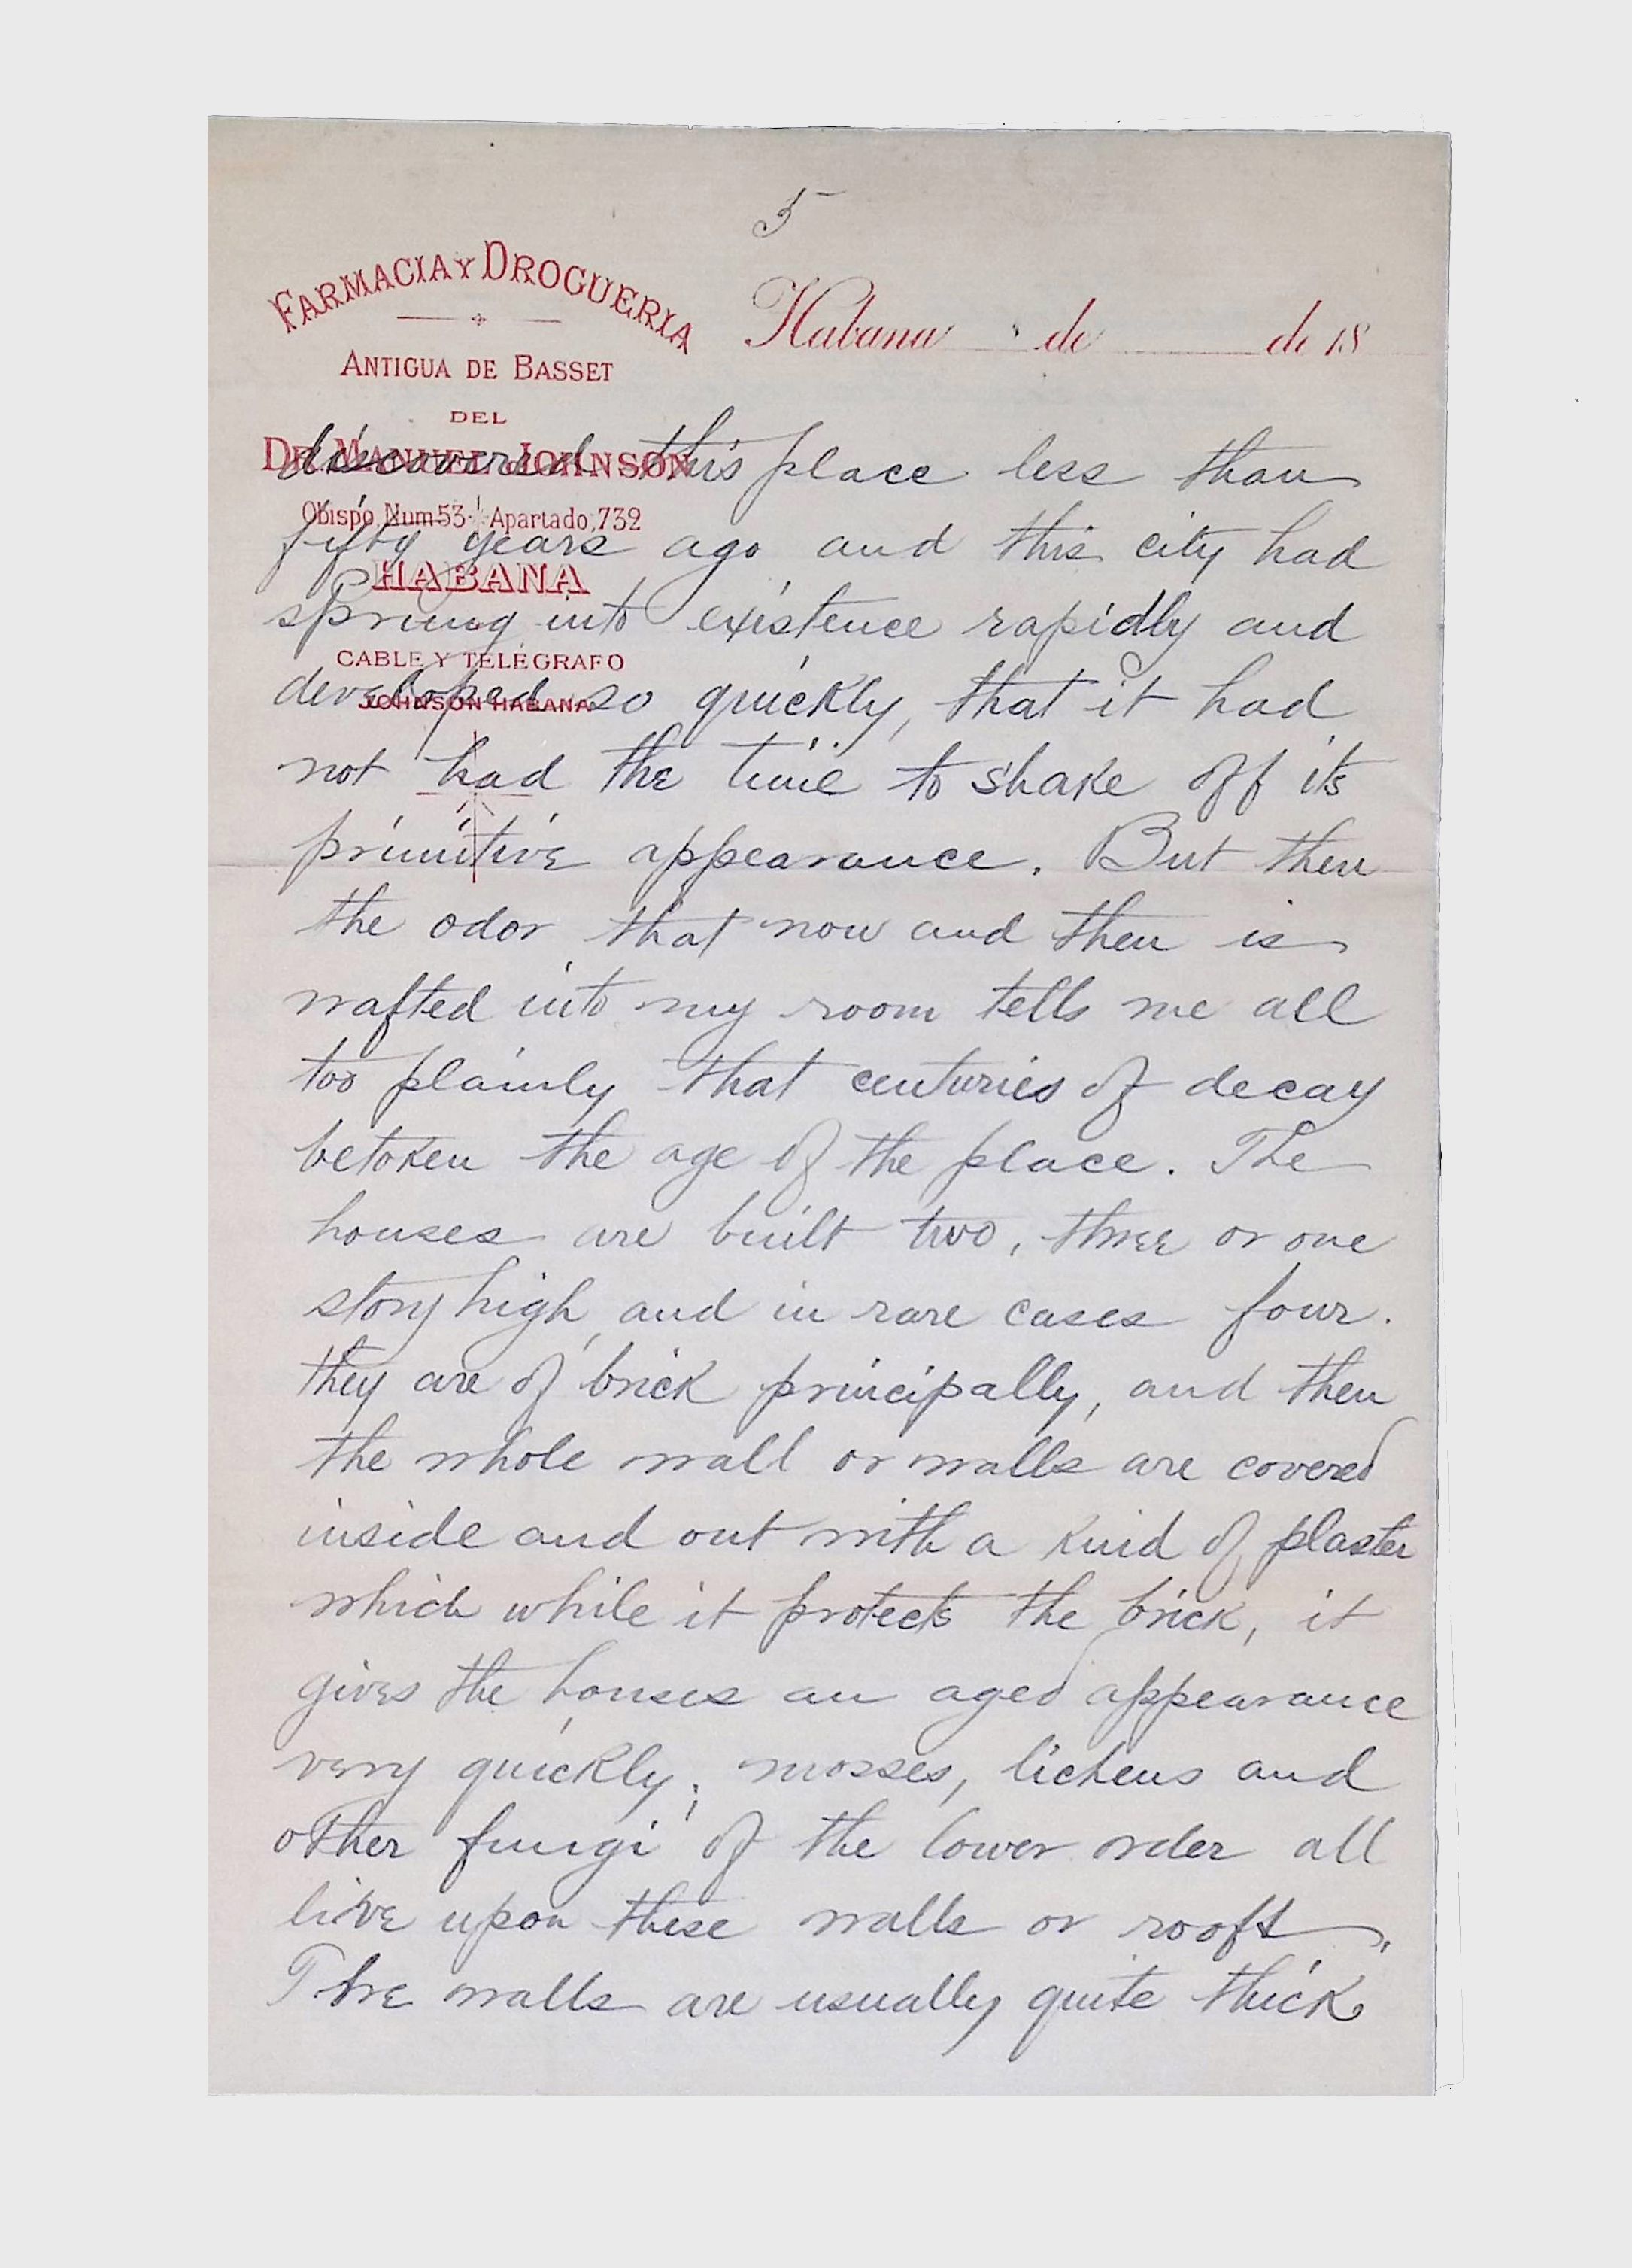 5
FARMACIA Y DROGUERIA
ANTIGUA DE BASSET
DEL
DR. MANUEL JOHNSON
Obispo Num 53 - Apartado, 732
HABANA
CABLE Y TELÉGRAFO
JOHNSON HABANA
Habana de de 18
discovered this place less than
fifty years ago and this city had
sprung into existence rapidly and
developed so quickly, that it had
not had the time to shake off its
primitive appearance. But then
the odor that now and then is
wafted into my room tells me all
too plainly that centuries of decay
betoken the age of the place. The
houses are built two, three or one
story high, and in rare cases four.
they are of brick principally, and then
the whole wall or walls are covered
inside and out with a kind of plaster
which while it protects the brick, it
gives the houses an aged appearance
very quickly; mosses, lichens and
other fungi of the lower order all
live upon these walls or roofs.
The walls are usually quite thick